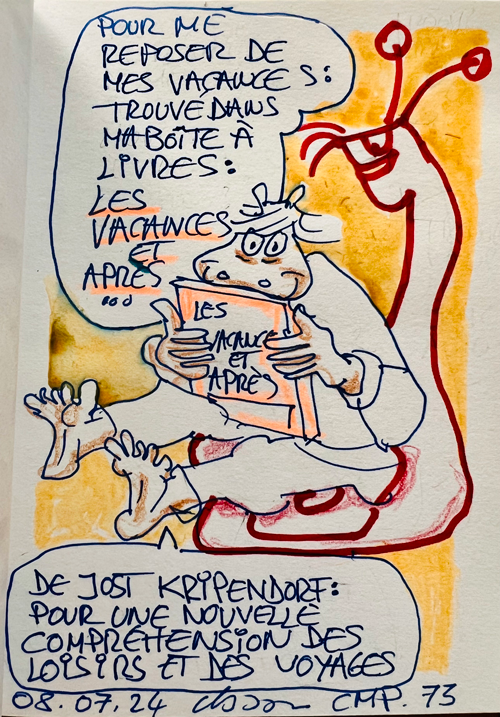 POUR ME
REPOSER DE
MES VACANCES:
TROUVÉ DANS
MA BOÎTE À
LIVRES:
LES
VACANCES
ET
APRÈS
...
LES
VACANCES
ET
APRÈS
DE JOST KRIPENDORF:
POUR UNE NOUVELLE
COMPRÉHENSION DES
LOISIRS ET DES VOYAGES
08.07.24 CMP. 73